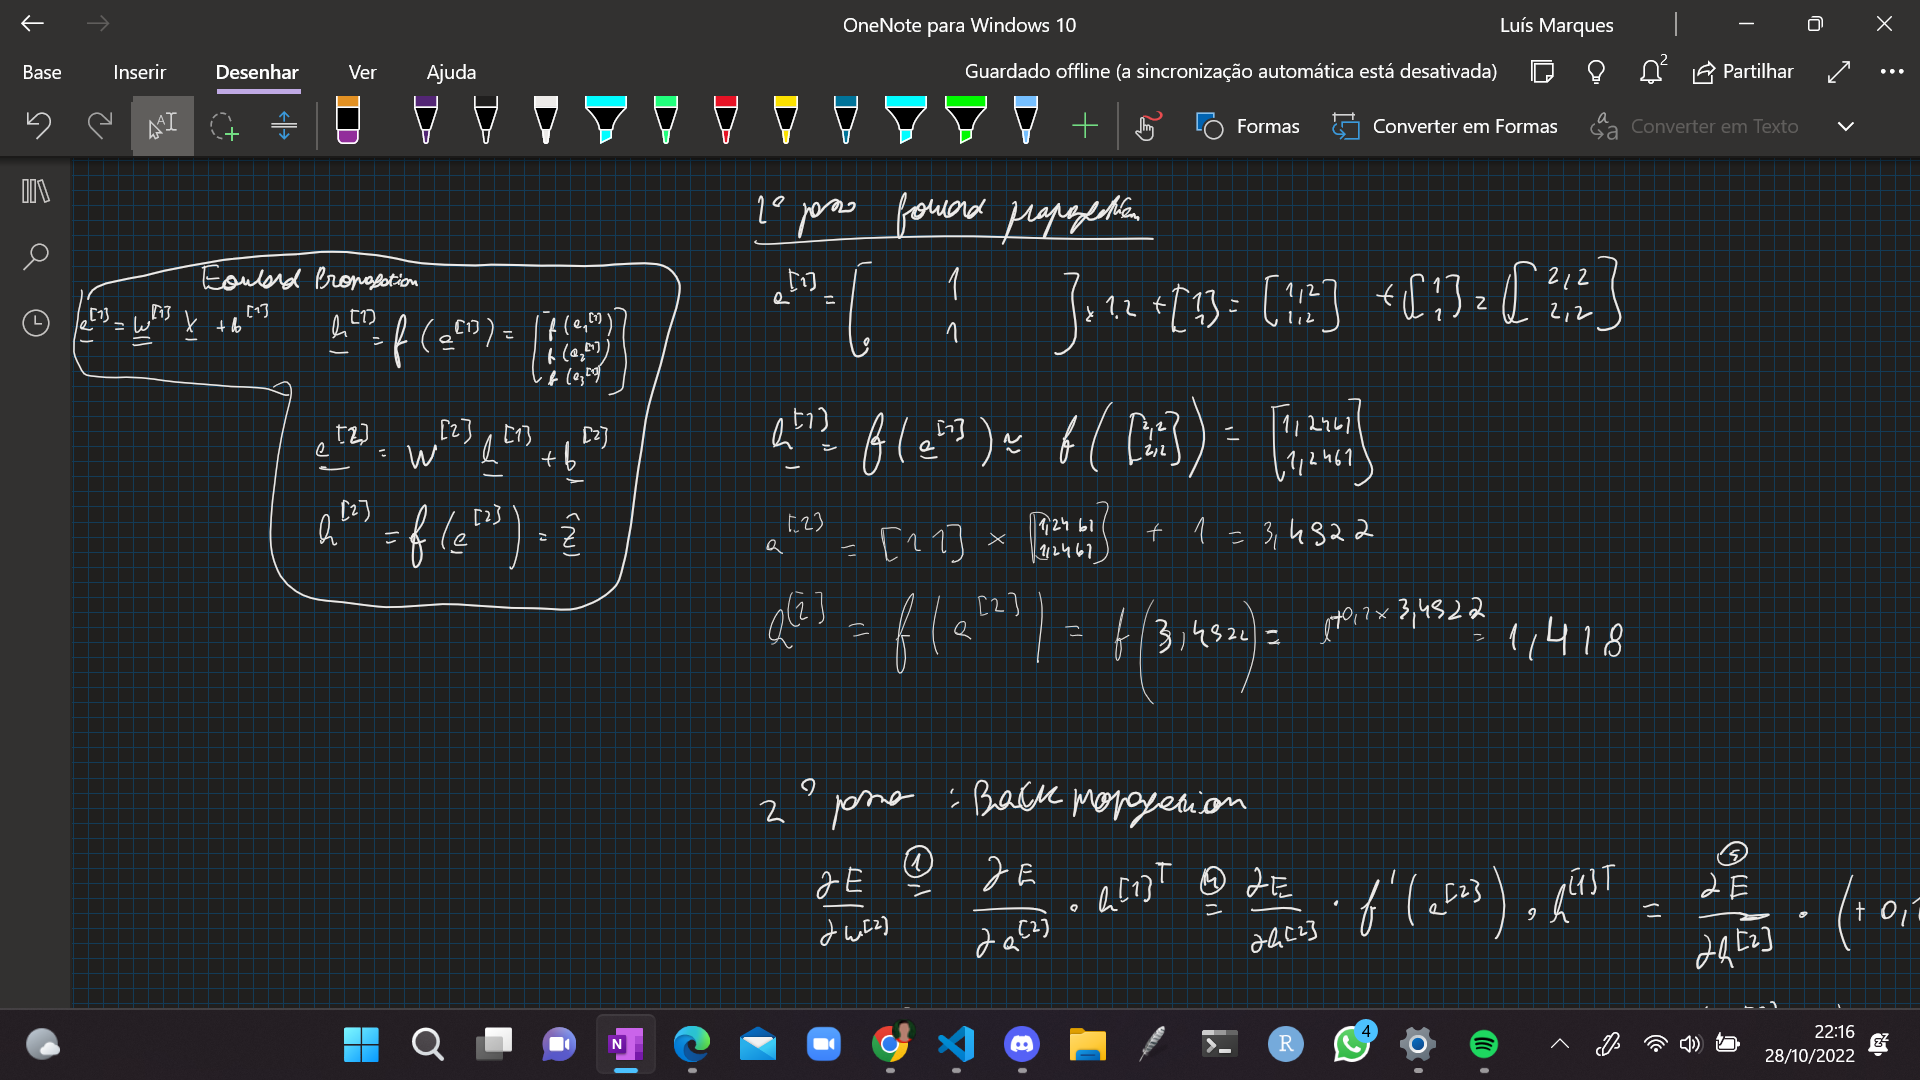 OneNote para Windows 10
Luís Marques
Base Inserir Desenhar Ver Ajuda
Guardado offline (a sincronização automática está desativada)
2
Partilhar
Formas
Converter em Formas
Converter em Texto
1º passo forward propagation
Forward Propagation
a[1] = w[1] x + b[1] h[1] = f(a[1]) = [f(a1[1]) f(a2[1]) f(a3[1])]
a[2] = W[2] h[1] + b[2]
h[2] = f(a[2]) = ẑ
a[1] = [1 1] × 1.2 + [1 1] = [1,2 1,2] + [1 1] = [2,2 2,2]
h[1] = f(a[1]) ≈ f([2,2 2,2]) = [1,2461 1,2461]
a[2] = [1 1] × [1,2461 1,2461] + 1 = 3,4922
h[2] = f(a[2]) = f(3,4922) = e+0,1×3,4922 = 1,418
2º passo : Back propagation
∂E/∂w[2] ①= ∂E/∂a[2] · h[1]T ④= ∂E/∂h[2] · f'(a[2]) · h[1]T = ⑤ ∂E/∂h[2] · (+0,1
4
22:16
28/10/2022